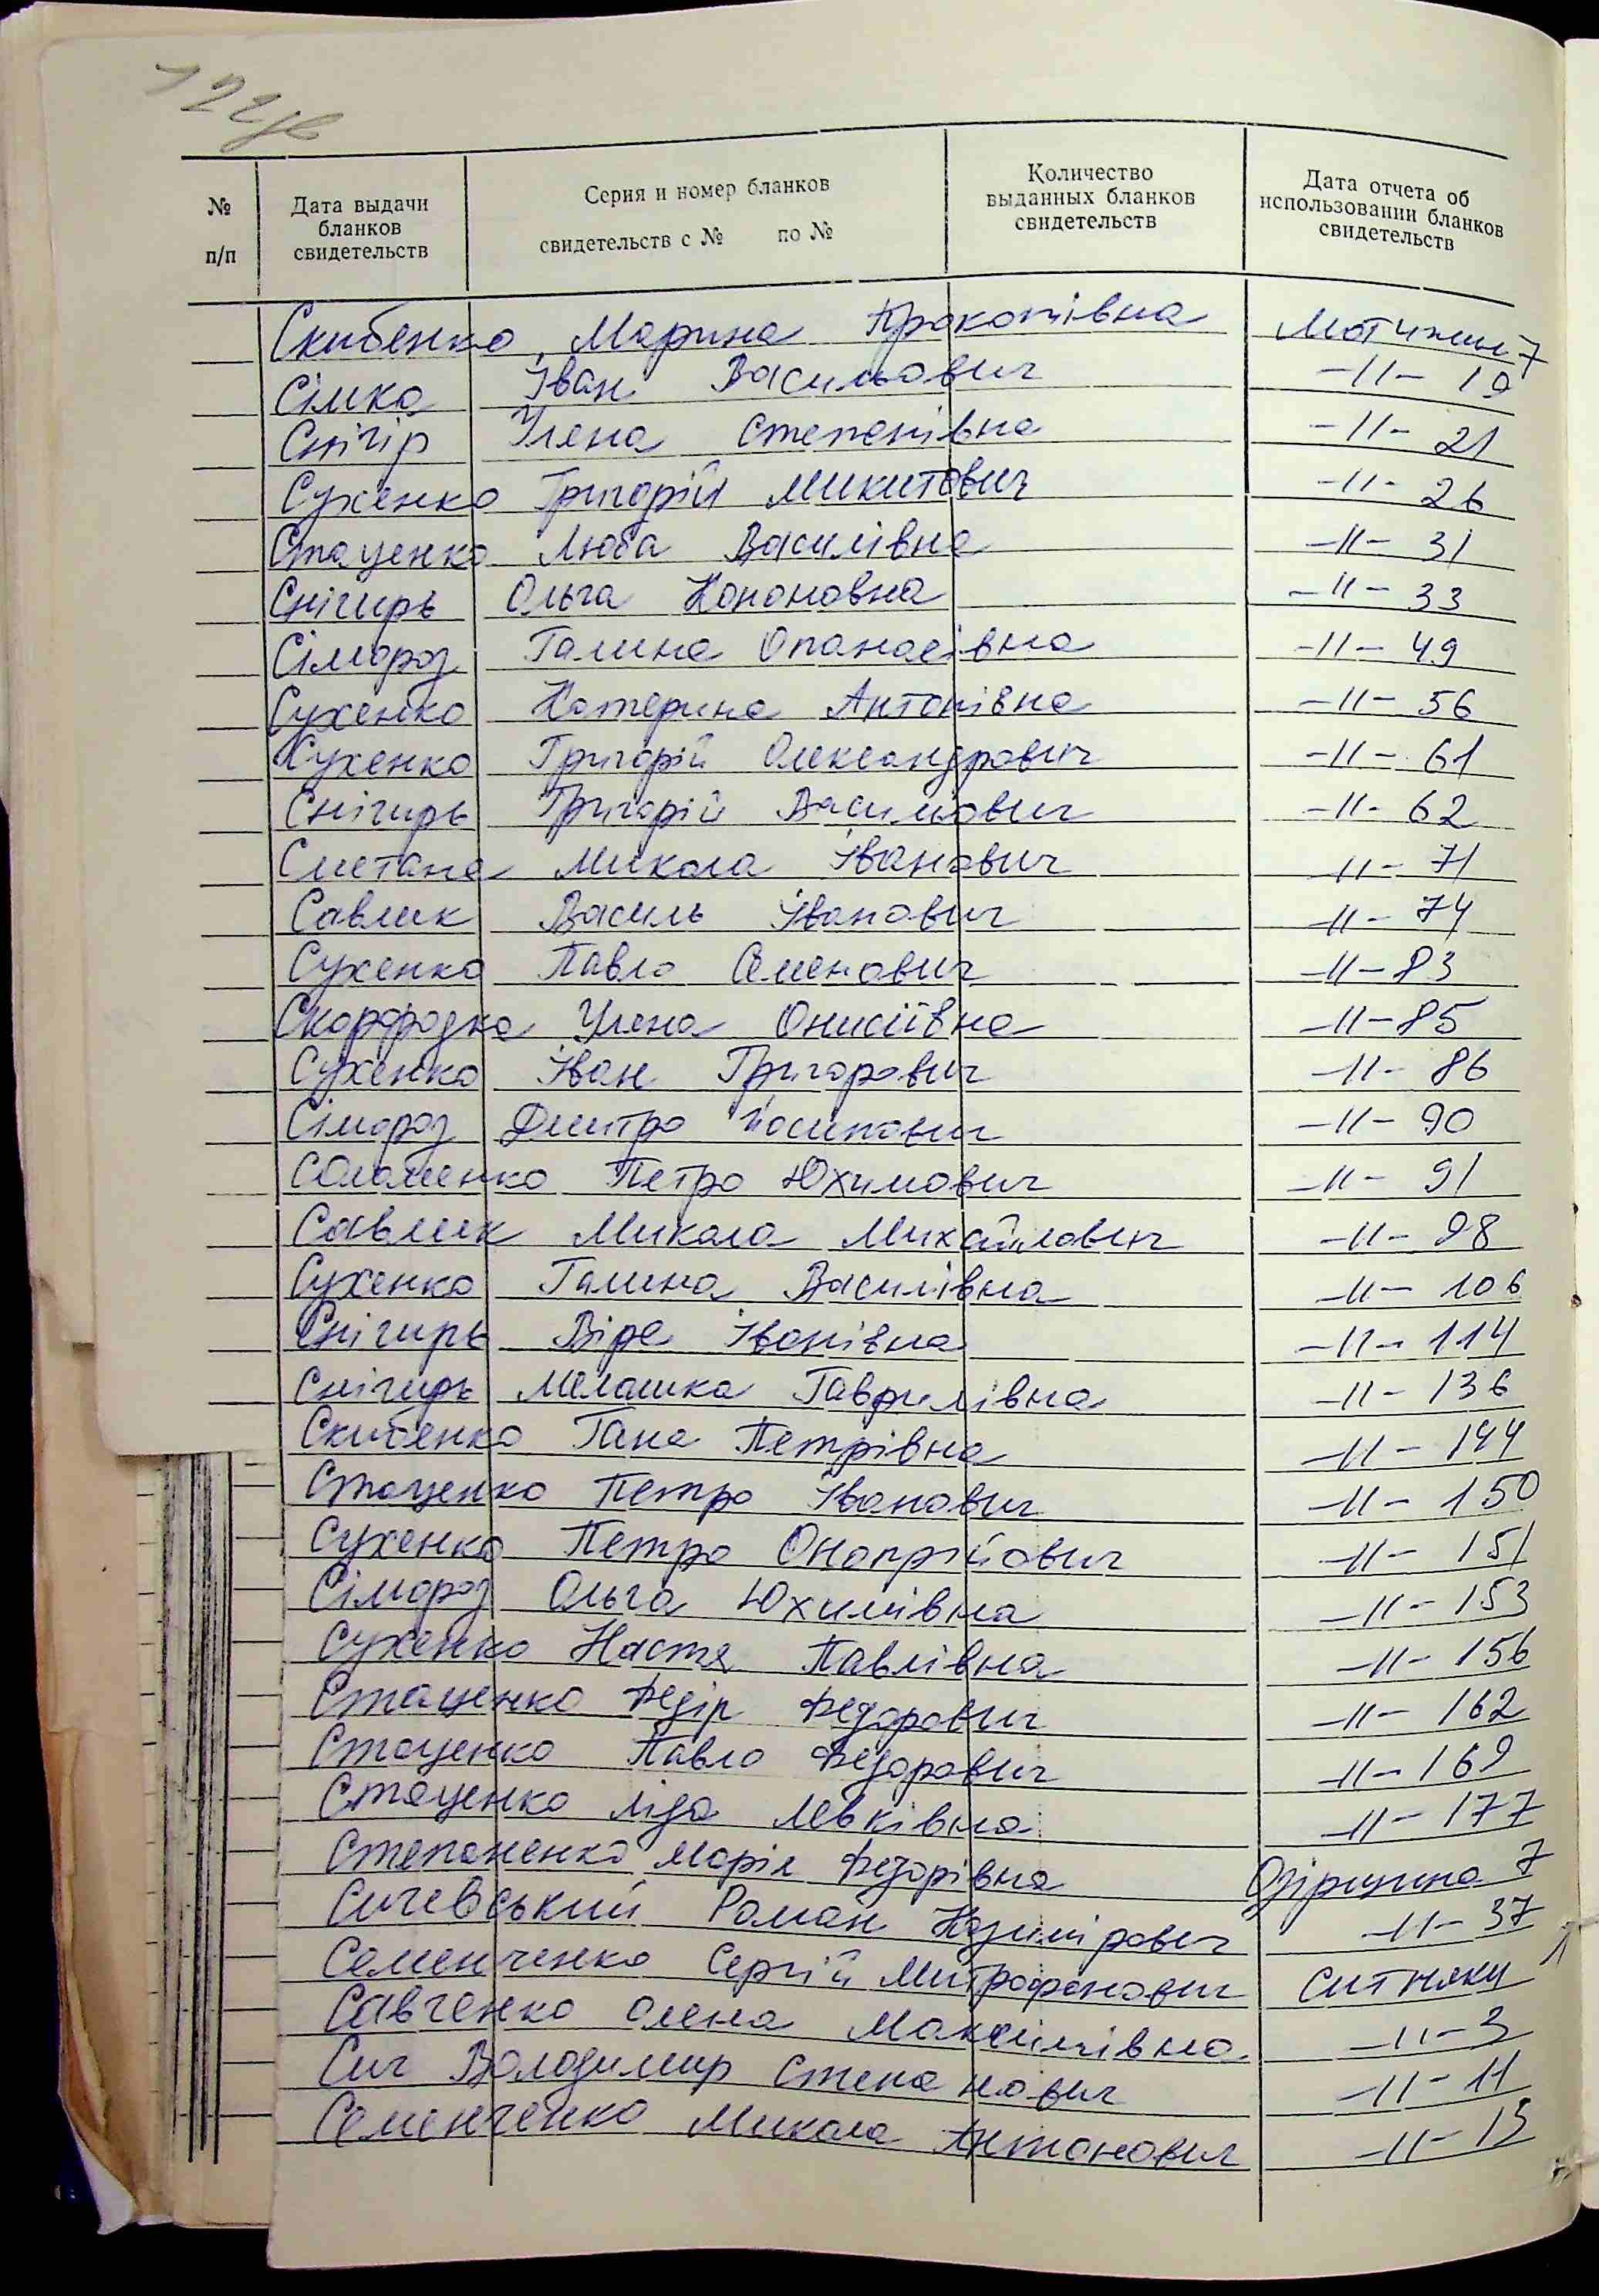 122зв
№ п/п
Дата выдачи бланков свидетельств
Серия и номер бланков свидетельств с № по №
Количество выданных бланков свидетельств
Дата отчета об использовании бланков свидетельств
Скибенко Марина Прокопівна Мотижин 7
Сімко Іван Васильович -11- 19
Снігір Улена Степанівна -11- 21
Сухенко Григорій Микитович -11- 26
Стаценко Люба Василівна -11- 31
Снігирь Ольга Кононовна -11- 33
Сімороз Галина Опанасівна -11- 49
Сухенко Катерина Антонівна -11- 56
Сухенко Григорій Олександрович -11- 61
Снігирь Григорій Васильович -11- 62
Сметана Микола Іванович -11- 71
Савлик Василь Іванович -11- 74
Сухенко Павло Семенович -11- 83
Скорородко Улена Онисіївна -11- 85
Сухенко Іван Григорович -11- 86
Сімороз Дмитро Йосипович -11- 90
Соломенко Петро Юхимович -11- 91
Савлик Микола Михайлович -11- 98
Сухенко Галина Василівна -11- 106
Снігирь Віра Іванівна -11- 114
Снігирь Мелашка Гаврилівна -11- 136
Скибенко Гана Петрівна -11- 144
Стаценко Петро Іванович -11- 150
Сухенко Петро Онопрійович -11- 151
Сімороз Ольга Юхимівна -11- 153
Сухенко Настя Павлівна -11- 156
Стаценко Федір Федорович -11- 162
Стаценко Павло Федорович -11- 169
Стаценко Ліда Левківна -11- 177
Степаненко Марія Федорівна Озірщина 7
Сичевський Роман Казимірович -11- 37
Семенченко Сергій Митрофанович Ситняки 1
Савченко Олена Максимівна -11- 3
Сич Володимир Степанович -11- 11
Семенченко Микола Антонович -11- 13